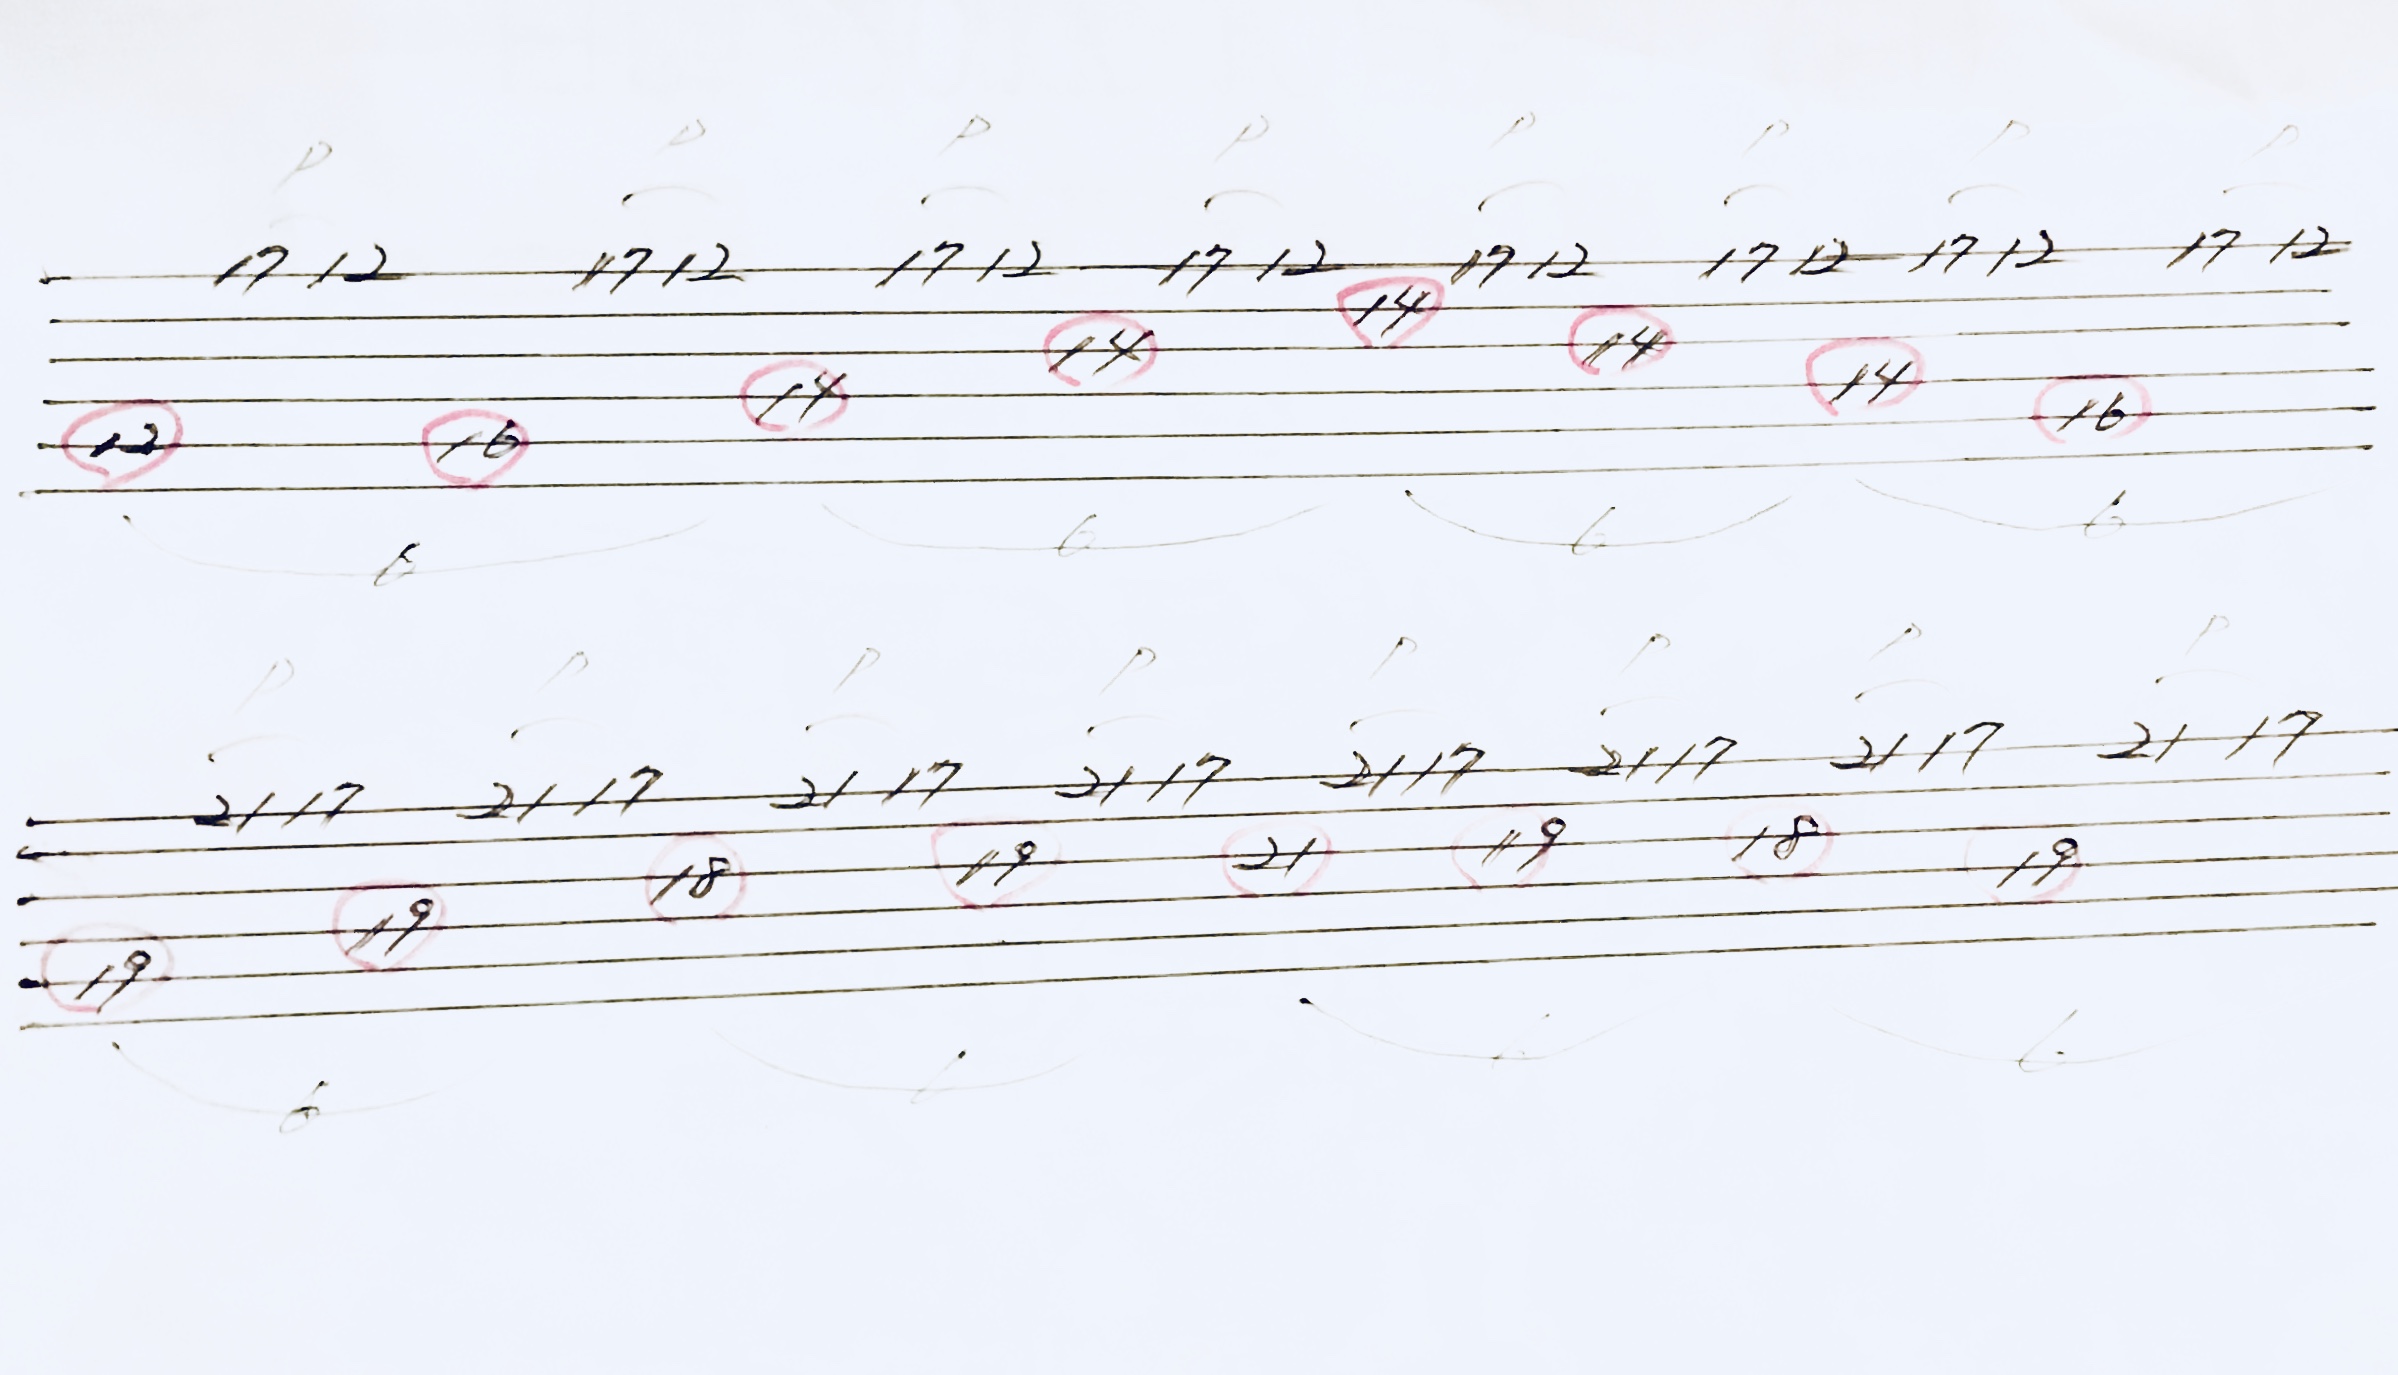 P P P P P P P P
17 12 17 12 17 12 17 12 17 12 17 12 17 12 17 12
12 16 14 14 14 14 14 16
6 6 6 6
P P P P P P P P
21 17 21 17 21 17 21 17 21 17 21 17 21 17 21 17
19 19 18 19 21 19 18 19
6 6